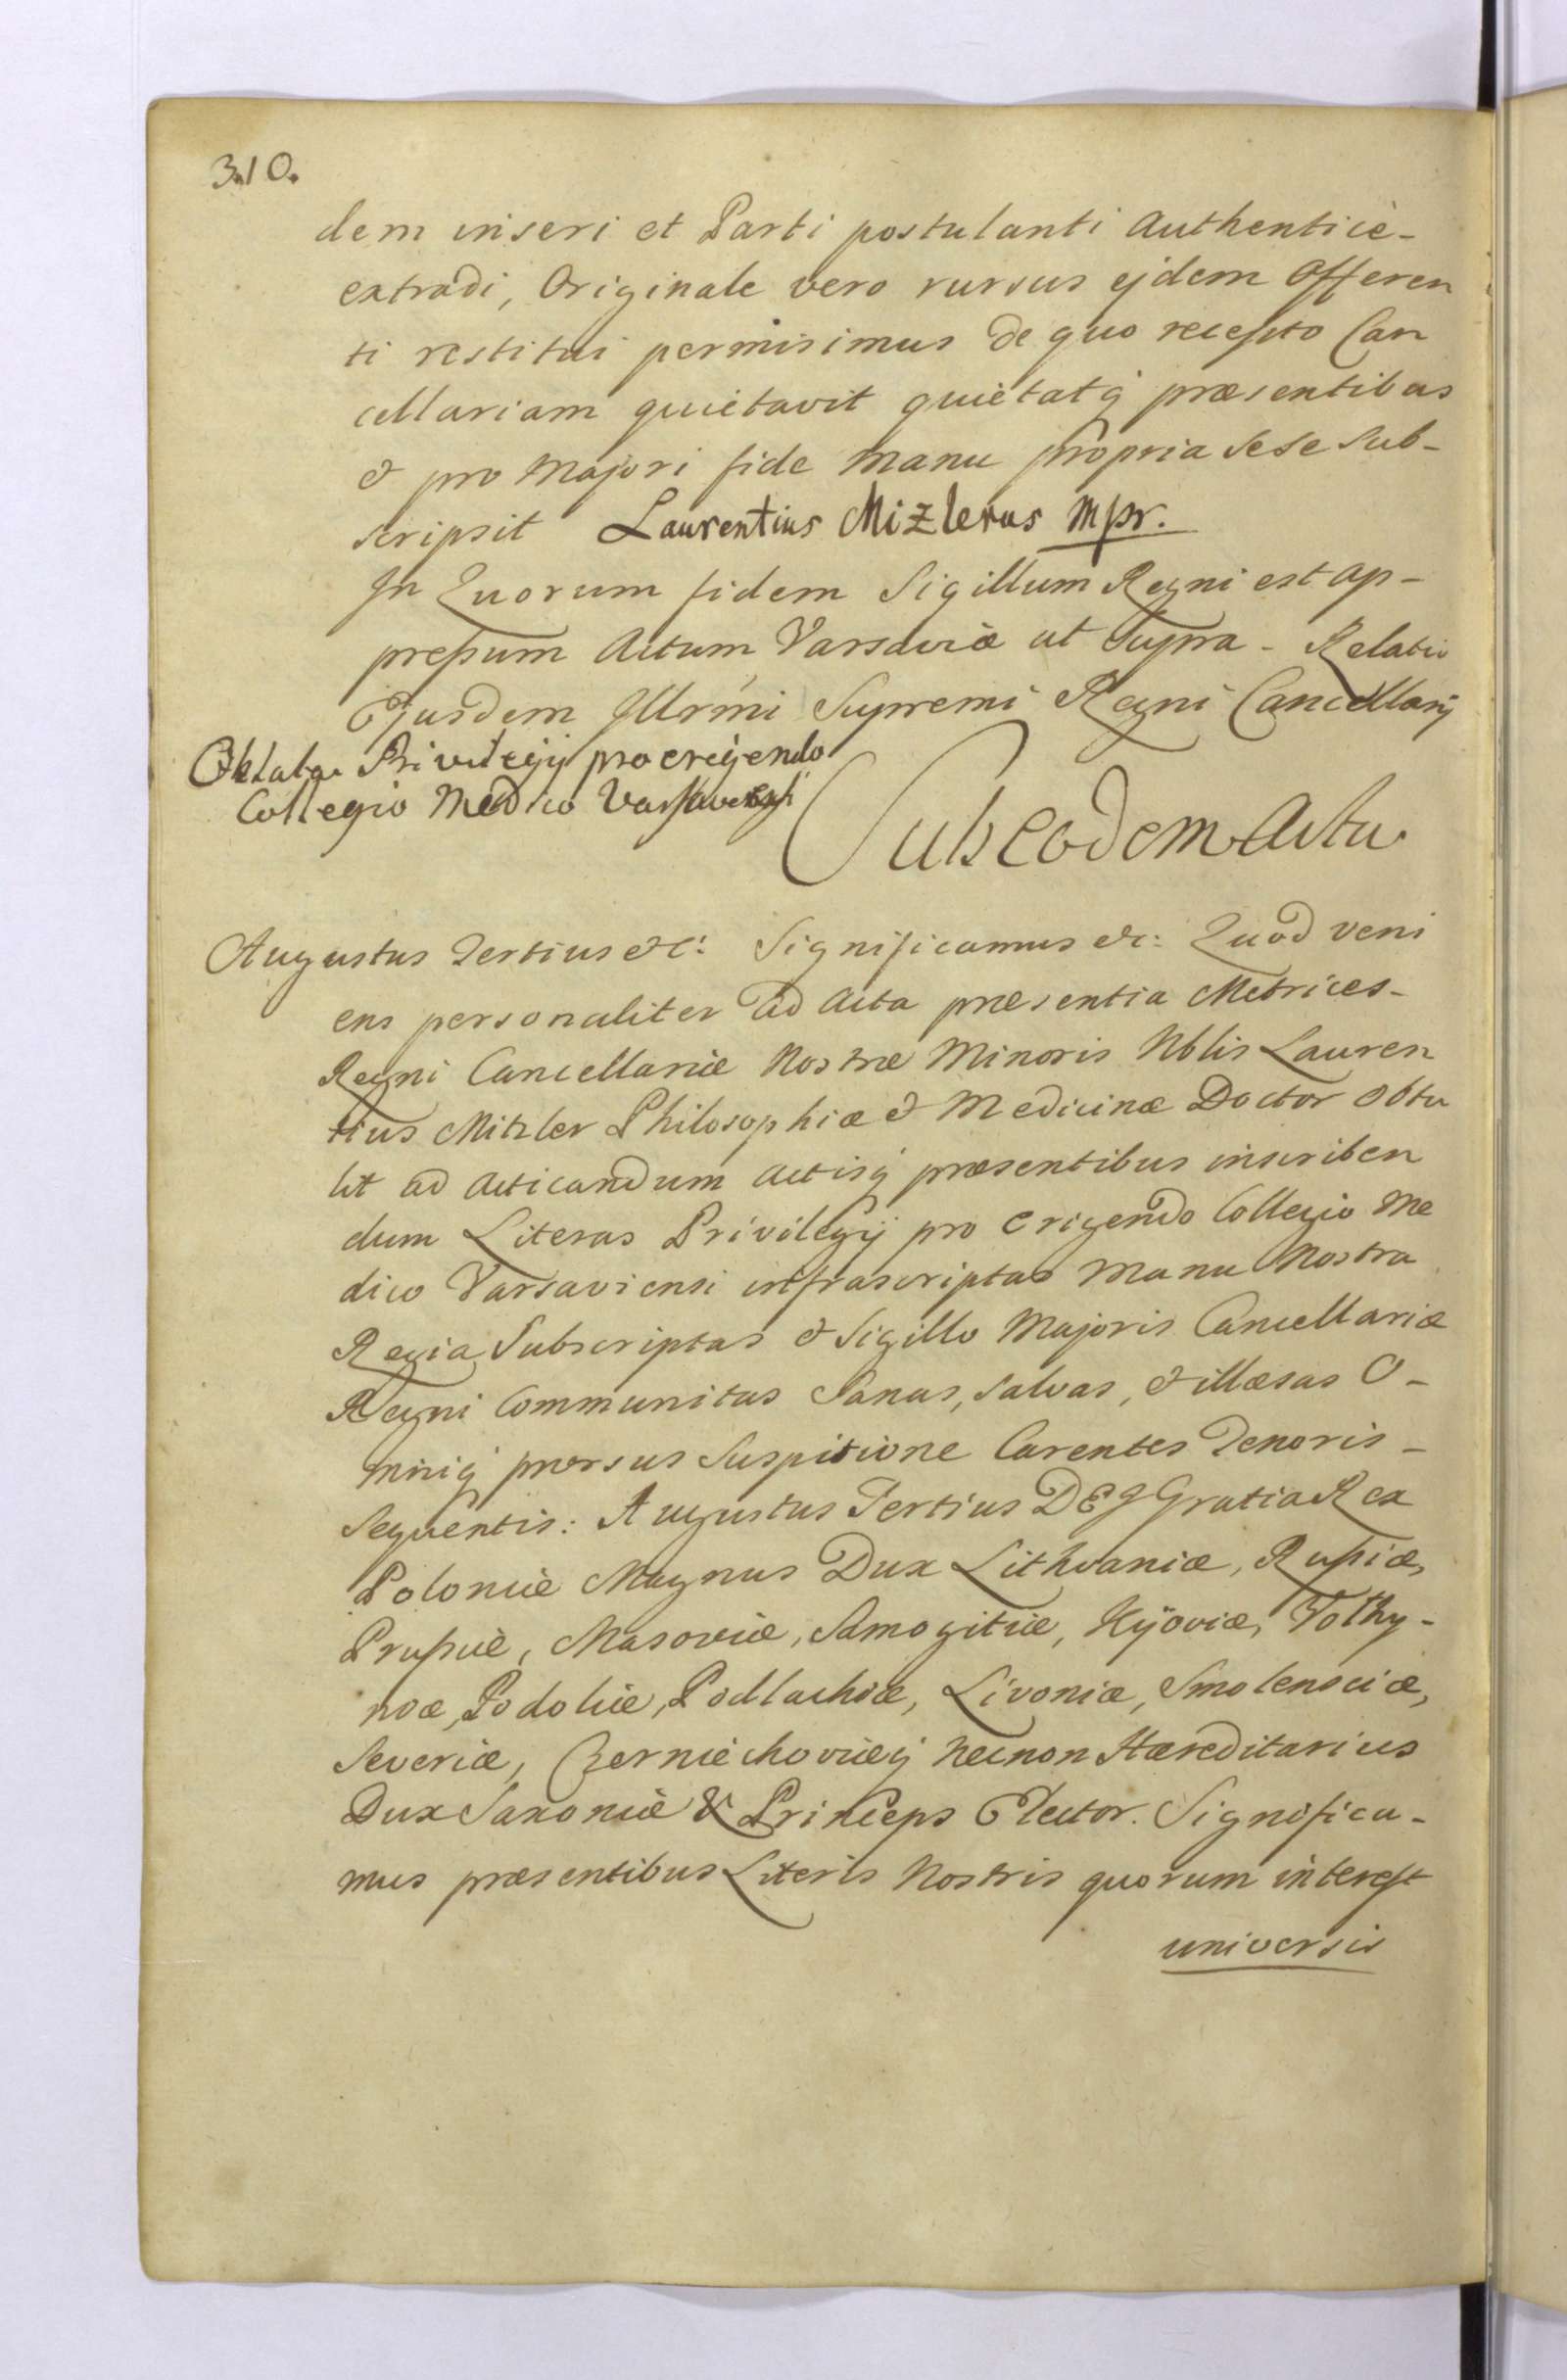 310.
dem inseri et Parti postulanti Authenticè-
extradi, Originale vero rursus ejdem Offeren
ti restitui permisimus de quo recepto Can
cellariam quietavit quietatq præsentibus
& pro Majori fide Manu propria sese Sub-
scripsit Laurentius Mizlerus mpr.
In Quorum fidem Sigillum Regni est ap-
pressum Actum Varsaviæ ut Supra - Relatio
Ejusdem Illrmi Supremi Regni Cancellarij
Oblata Privilegij pro erigendo
Collegio Medico Varsaviensi
Sub eodem Actu
Augustus Tertius &c: Significamus &c: Quod veni
ens personaliter ad Acta præsentia Metrices-
Regni Cancellariæ Nostræ Minoris Nblis Lauren
tius Mitzler Philosophiæ & Medicinæ Doctor obtu
lit ad Acticandum Actisq præsentibus inscriben
dum Literas Privilegij pro erigendo Collegio Me
dico Varsaviensi infrascriptas Manu Nostra
Regia Subscriptas & Sigillo Majoris Cancellariæ
Regni Communitas Sanas, salvas, & illæsas O-
mniq prorsus Suspitione Carentes Tenoris-
Sequentis: Augustus Tertius DEI Gratia Rex
Poloniæ Magnus Dux Lithvaniæ, Russiæ,
Prussiæ, Masoviæ, Samogitiæ, Kijoviæ, Volhy-
niæ, Podoliæ, Podlachiæ, Livoniæ, Smolensciæ,
Severiæ, Czerniechoviæq necnon Hæreditarius
Dux Saxoniæ & Princeps Elector. Significa-
mus præsentibus Literis Nostris quorum interest
universis